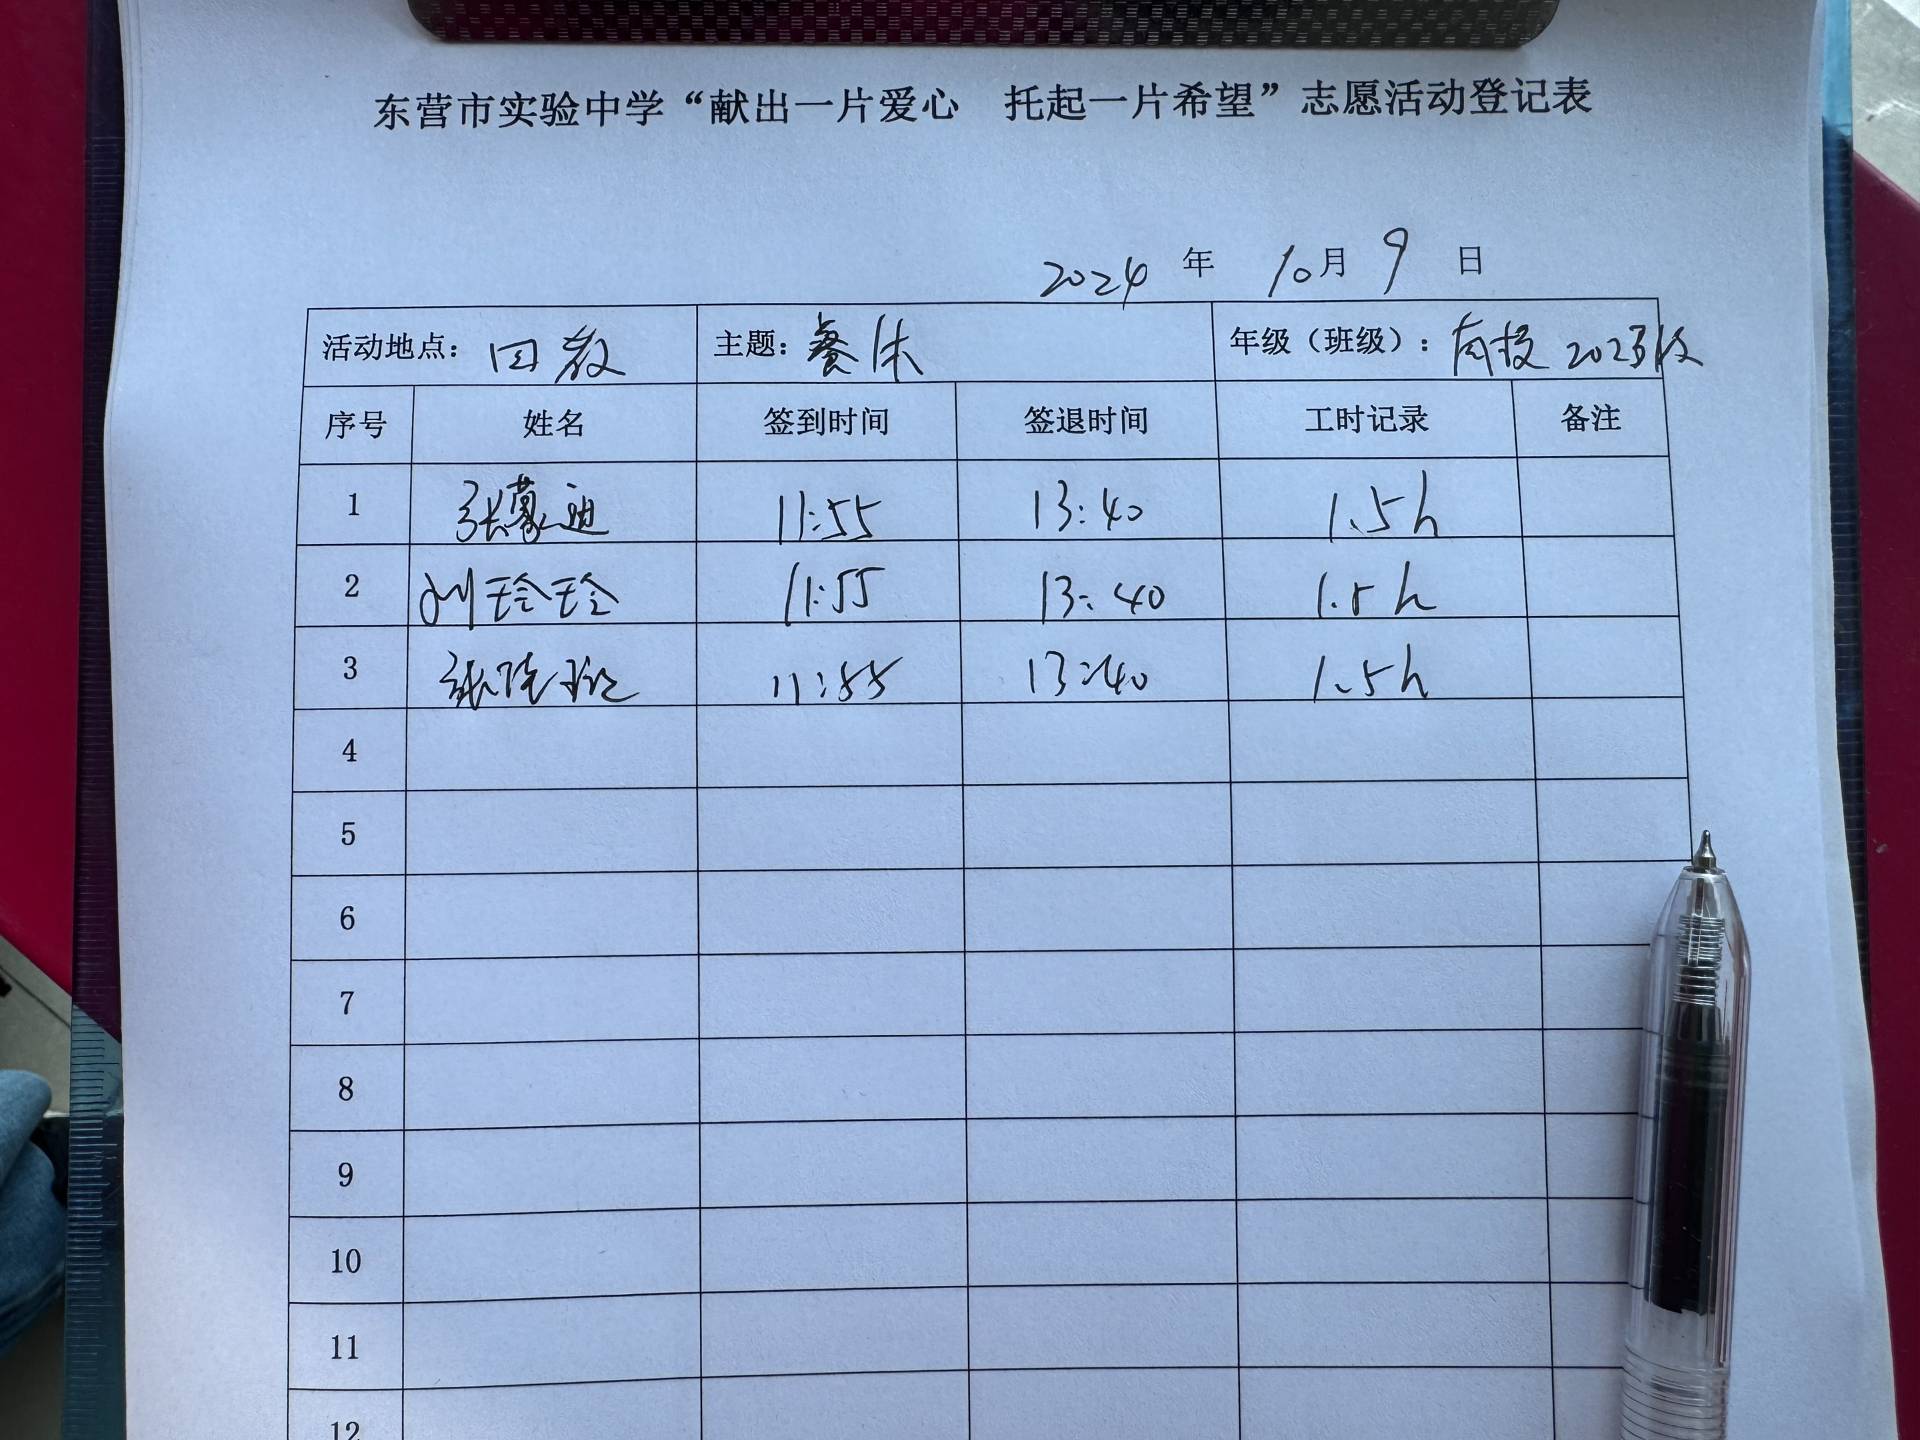 东营市实验中学“献出一片爱心　托起一片希望”志愿活动登记表
2024 年 10月 9 日
活动地点： 田教 主题：餐休 年级（班级）：南校 2023级
序号 姓名 签到时间 签退时间 工时记录 备注
1 张蒙迪 11:55 13:40 1.5h
2 刘玲玲 11:55 13:40 1.5h
3 张 11:55 13:40 1.5h
4
5
6
7
8
9
10
11
12